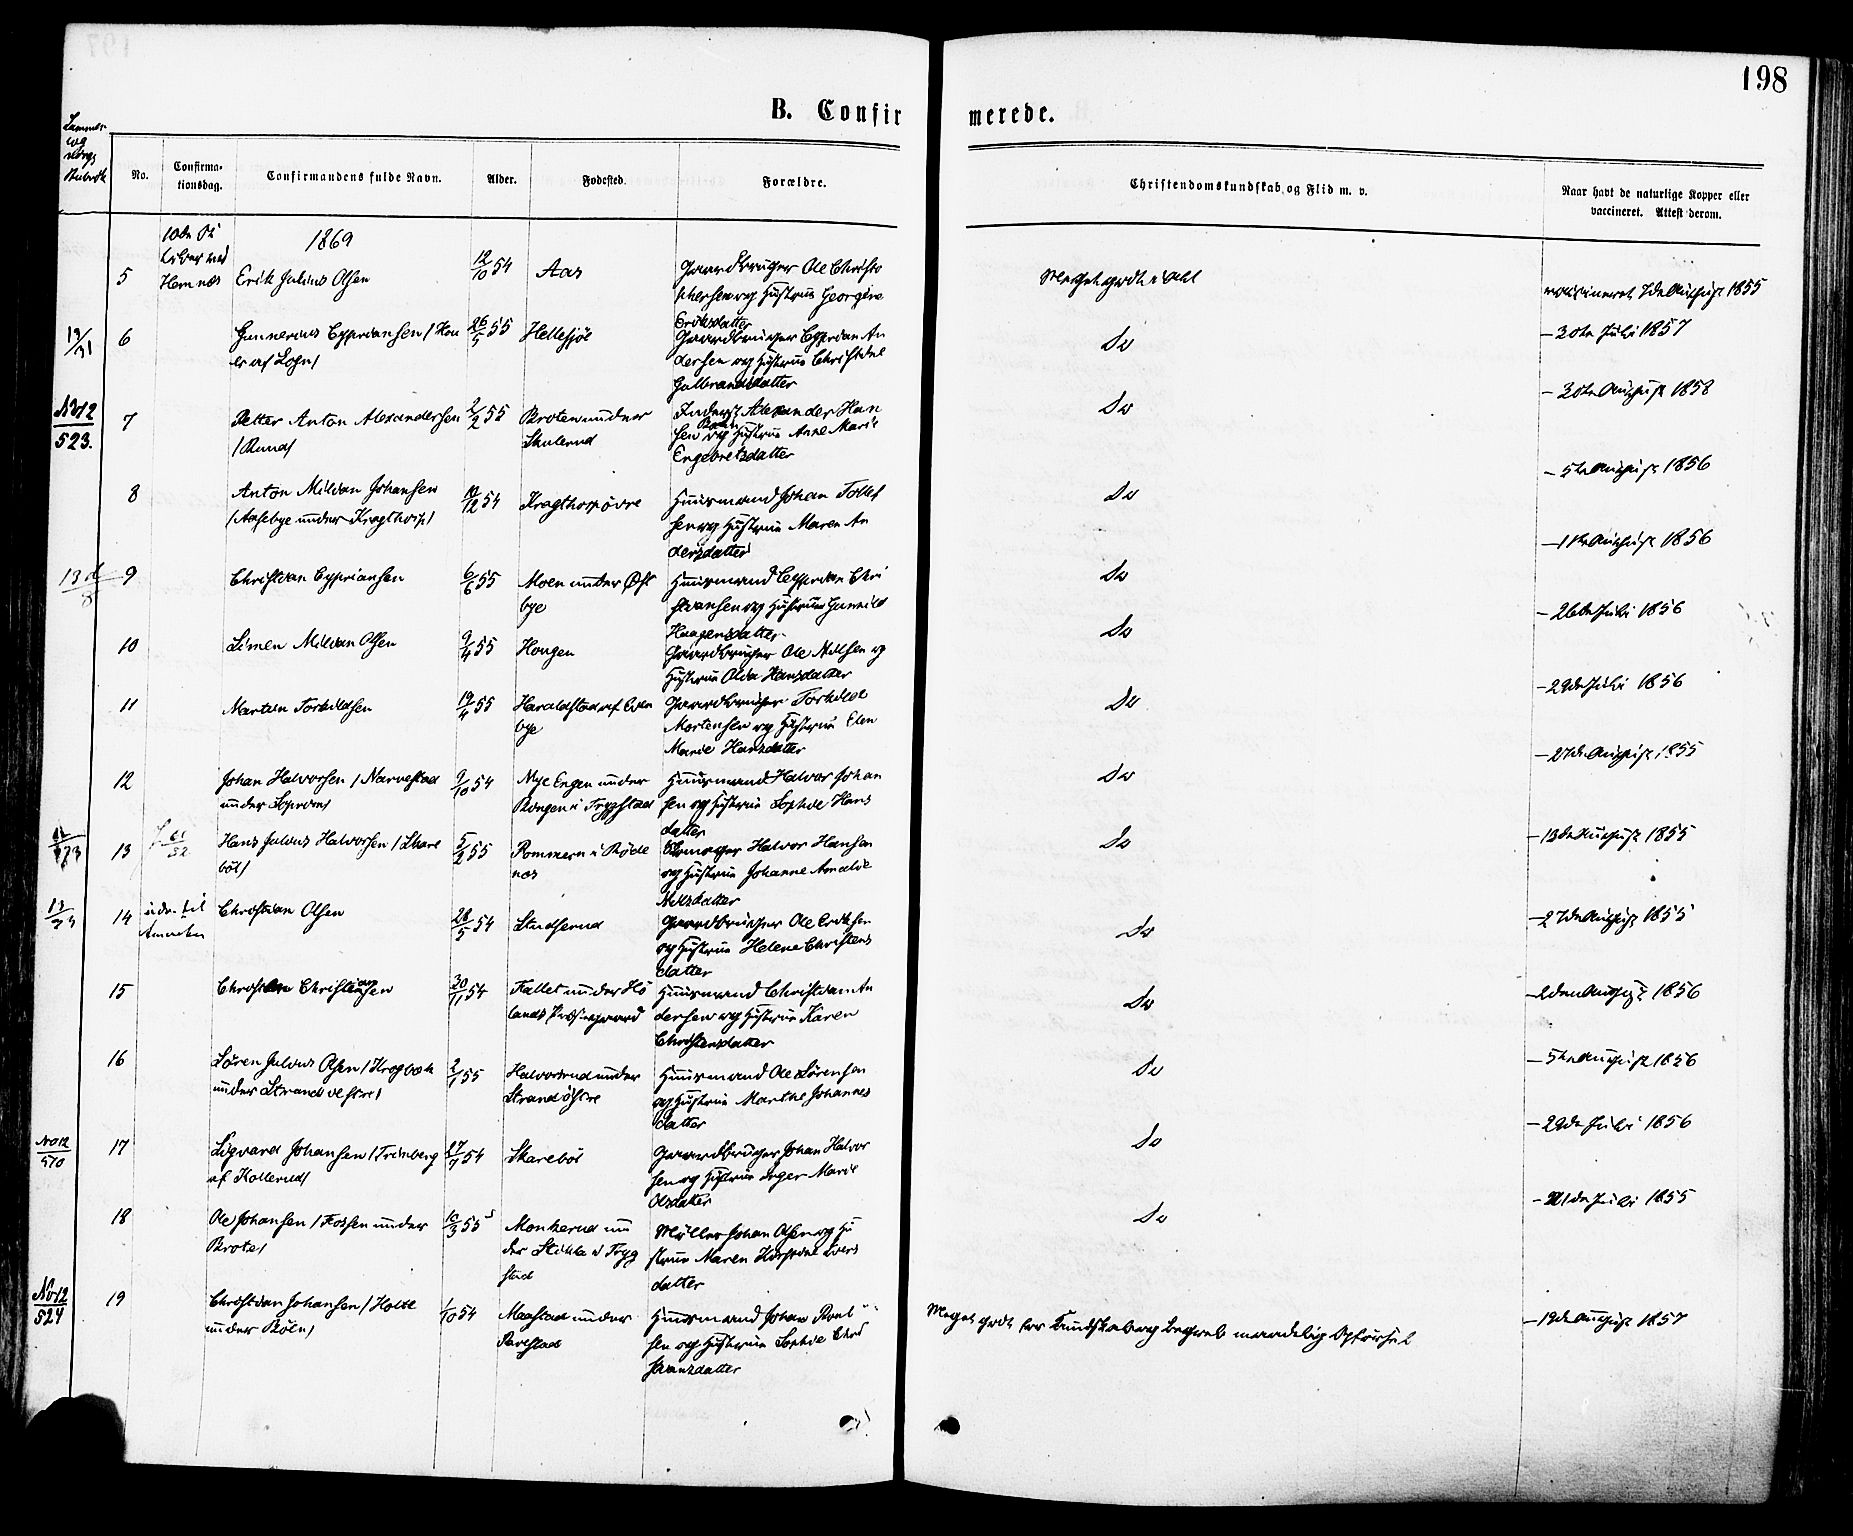 198
B. Confirmerede.
No.
Confirma-
tionsdag.
Confirmandens fulde Navn.
Alder.
Fødested.
Forældre.
Christendomskundskab og Flid m. v.
Naar havt de naturlige Kopper eller
vaccineret. Attest derom.
1869
5 Hemnæs Erik Julius Olsen 12/10 54 Aas Gaardbruger Ole Christo
phersen og Hustrue Georgine
Eriksdatter
Meget godt vaccineret 7de August 1855
6 Gunnerius Cypriansen / 26/5 55 Hellesjøe Gaardbruger Cyprian An
dersen og Hustrue Christine
Gulbrandsdatter
Do
– 30te Juli 1857
No 12
523.
7 Petter Anton Alexandersen 2/2 55 Broten under
Skulerud
Inderst Alexander Han
sen og Hustrue Anne Marie
Engebretsdatter
Do
– 30te August 1858
8 Anton Milian Johansen
/Aasebye under Kragthorp/
10/12 54 Kragthorp øvre
Huusmand Johan Tollef
sen og Hustrue Maren An
dersdatter
Do
– 5te August 1856
9 Christian Cypriansen 6/6 55 Moen under Øst
bye
Huusmand Cyprian Chri
stiansen og Hustrue Gunnild
Haagensdatter
Do
– 11te August 1856
10 Simen Milian Olsen 9/4 55 Hougen
Gaardbruger Ole Nillsen og
Hustrue Olea Hansdatter
Do
– 26de Juli 1856
11 Martin Torkildsen 19/4 55 Haraldstad af
bye
Gaardbruger Torkild
Mortensen og Hustrue Elen
Marie Hansdatter
Do
– 29de Juli 1856
12 Johan Halvorsen / Narvestad
under
9/10 54 Nye Engen under
Bongen i Trygstad
Huusmand Halvor Johan
sen og Hustrue Sophie Hans
datter
Do
– 27de August 1855
13 Hans Julius Halvorsen / Skare
böl/
5/2 55 Pommern i Røde
næs
Halvor Hansen
og Hustrue Johanne Amalie
Nilsdatter
Do
– 13de August 1855
14 udv. til
Amerika
Christian Olsen 28/5 54 Studserud
Gaardbruger Ole Eriksen
og Hustrue Helene Christens
datter
Do
– 27de August 1855
15 Christian Christiansen 30/11 54 Fallet under Hö
lands Præstegaard
Huusmand Christian An
dersen og Hustrue Karen
Christensdatter
Do
– 2den August 1856
16 Søren Julius Olsen / Krogbæk
under Strand vestre/
2/1 55 Halvorsrud under
Strand østre
Huusmand Ole Sörensen
og Hustrue Marthe Johannes
datter
Do
– 5te August 1856
No 12
570
17 Sigvard Johansen / Trinberg
af Kollerud/
27/7 54 Skareböl
Gaardbruger Johan Halvor
sen og Hustrue Inger Marie
Olsdatter
Do
– 29de Juli 1856
18 Ole Johansen / Fossen under
Brote/
10/3 55 Monkerud un
der Stikla i Tryg
stad
Müller Johan Olsen og Hu
strue Maren Kirstine Ivers
datter
Do
– 21de Juli 1855
No 12
524
19 Christian Johansen / Holte
under Böen/
1/10 54 Maastad under
Parstad
Huusmand Johan Poul
sen og Hustrue Sophie Chri
stiansdatter
Meget godt for Kundskab og Begreb maadelig Opförsel
– 19de August 1857